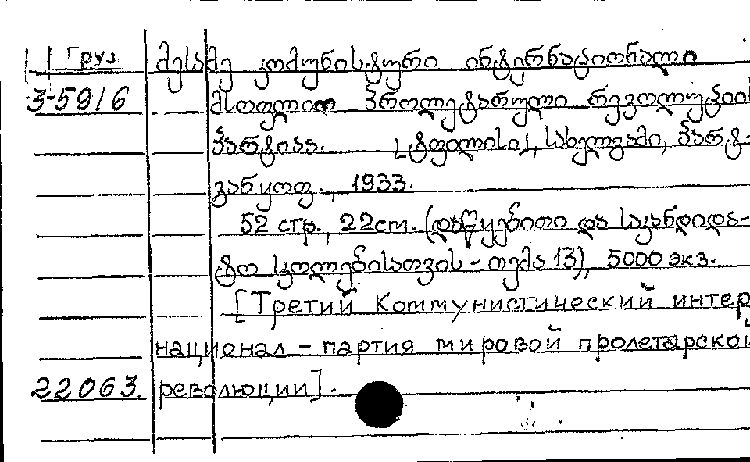 Груз მესამე კომუნისტური ინტერნაციონალი
3-5916 მსოფლიო პროლეტარული რევოლუციის
პარტიაა. [ტფილისი], სახელგამი, პარტ-
განყოფ., 1933.
52 стр., 22 cm. (დაწყებითი და საკანდიდა-
ტო სკოლებისათვის - თემა 13), 5000 экз.
[Третий Коммунистический интер
национал - партия мировой пролетарской
22063. революции].